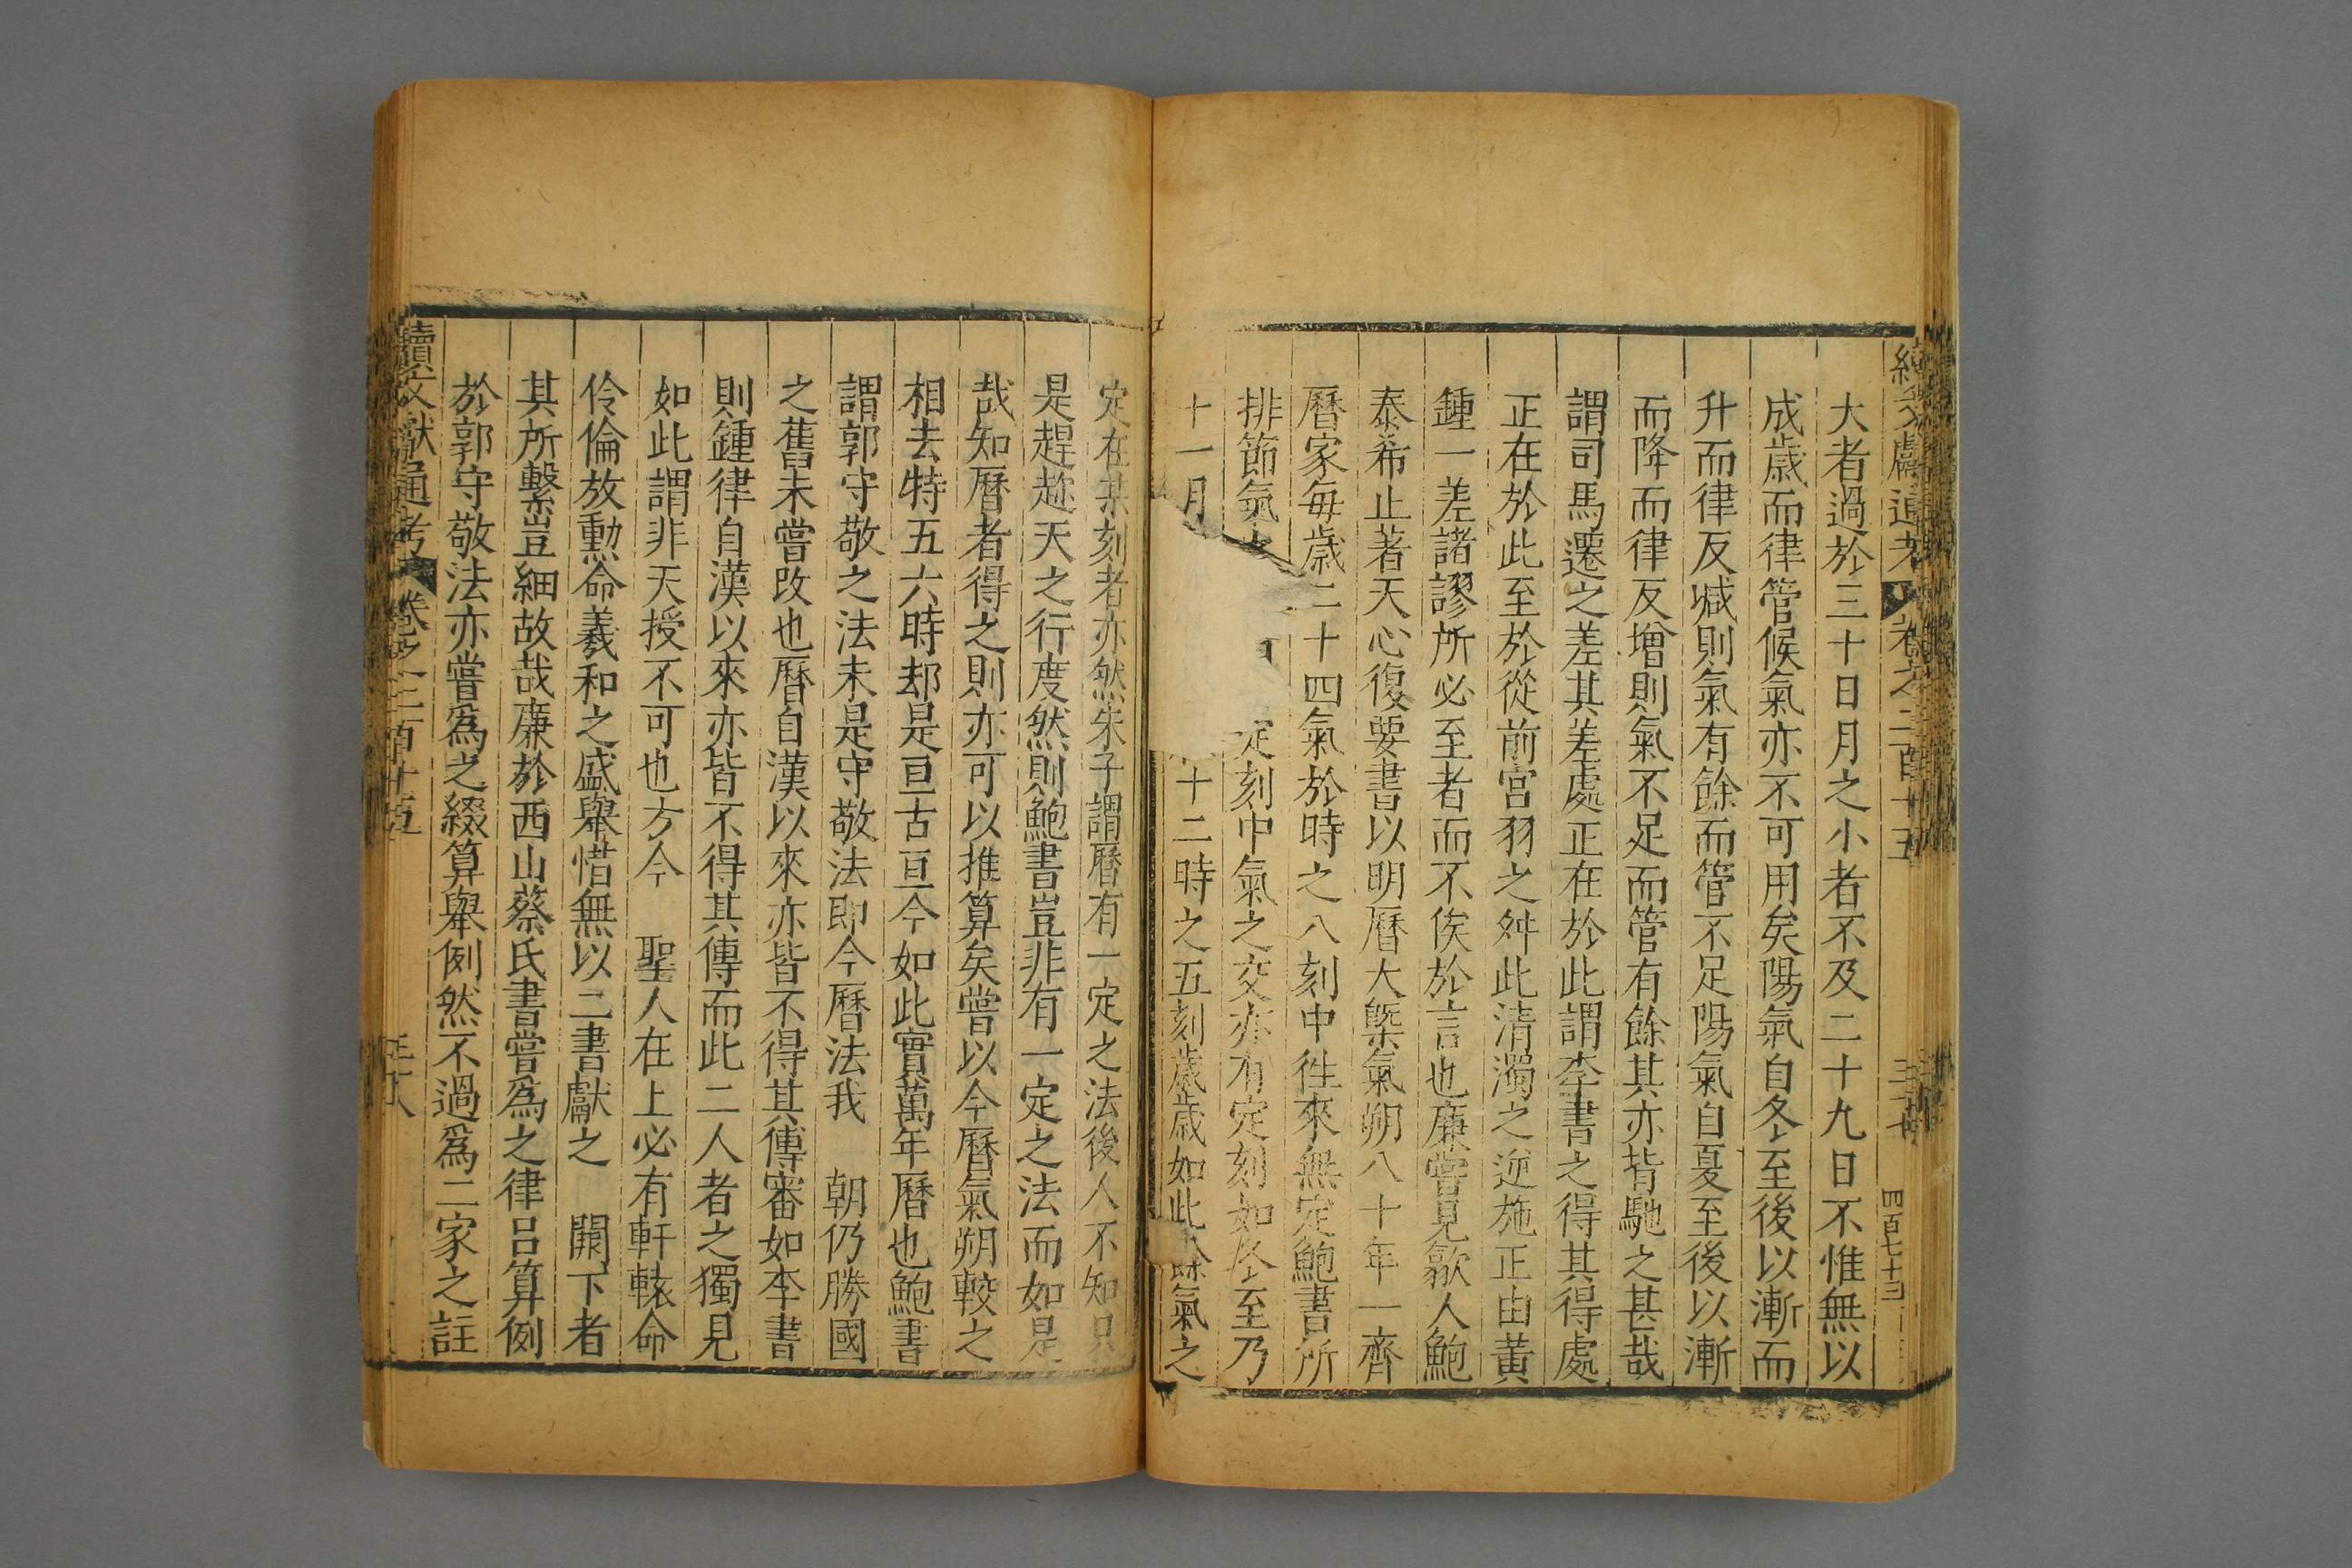 大者過於三十日月之小者不及二十九日不惟無以
成歲而律管候氣亦不可用矣陽氣自冬至後以漸而
升而律反減則氣有餘而管不足陽氣自夏至後以漸
而降而律反增則氣不足而管有餘其亦背馳之甚哉
謂司馬遷之差其差處正在於此謂李書之得其得處
正在於此至於從前宮羽之舛此清濁之逆施正由黃
鍾一差諸謬所必至者而不俟於言也廉嘗見歙人鮑
泰希止著天心復要書以明曆大槩氣朔八十年一齊
曆家每歲二十四氣於時之八刻中徃來無定鮑書所
排節氣 定刻中氣之交亦有定刻如冬至乃
十一月 十二時之五刻歲歲如此餘氣之
定在某刻者亦然朱子謂曆有一定之法後人不知只
是趕趂天之行度然則鮑書豈非有一定之法而如是
哉知曆者得之則亦可以推算矣嘗以今曆氣朔較之
相去特五六時却是亘古亘今如此實萬年曆也鮑書
謂郭守敬之法未是守敬法即今曆法我 朝仍勝國
之舊未嘗改也曆自漢以來亦皆不得其傳審如李書
則鍾律自漢以來亦皆不得其傳而此二人者之獨見
如此謂非天授不可也方今 聖人在上必有軒轅命
伶倫放勳命羲和之盛舉惜無以二書獻之 闕下者
其所繫豈細故哉廉於西山蔡氏書嘗爲之律呂算例
於郭守敬法亦嘗爲之綴算舉例然不過爲二家之註
續文獻通考 卷之二百十五